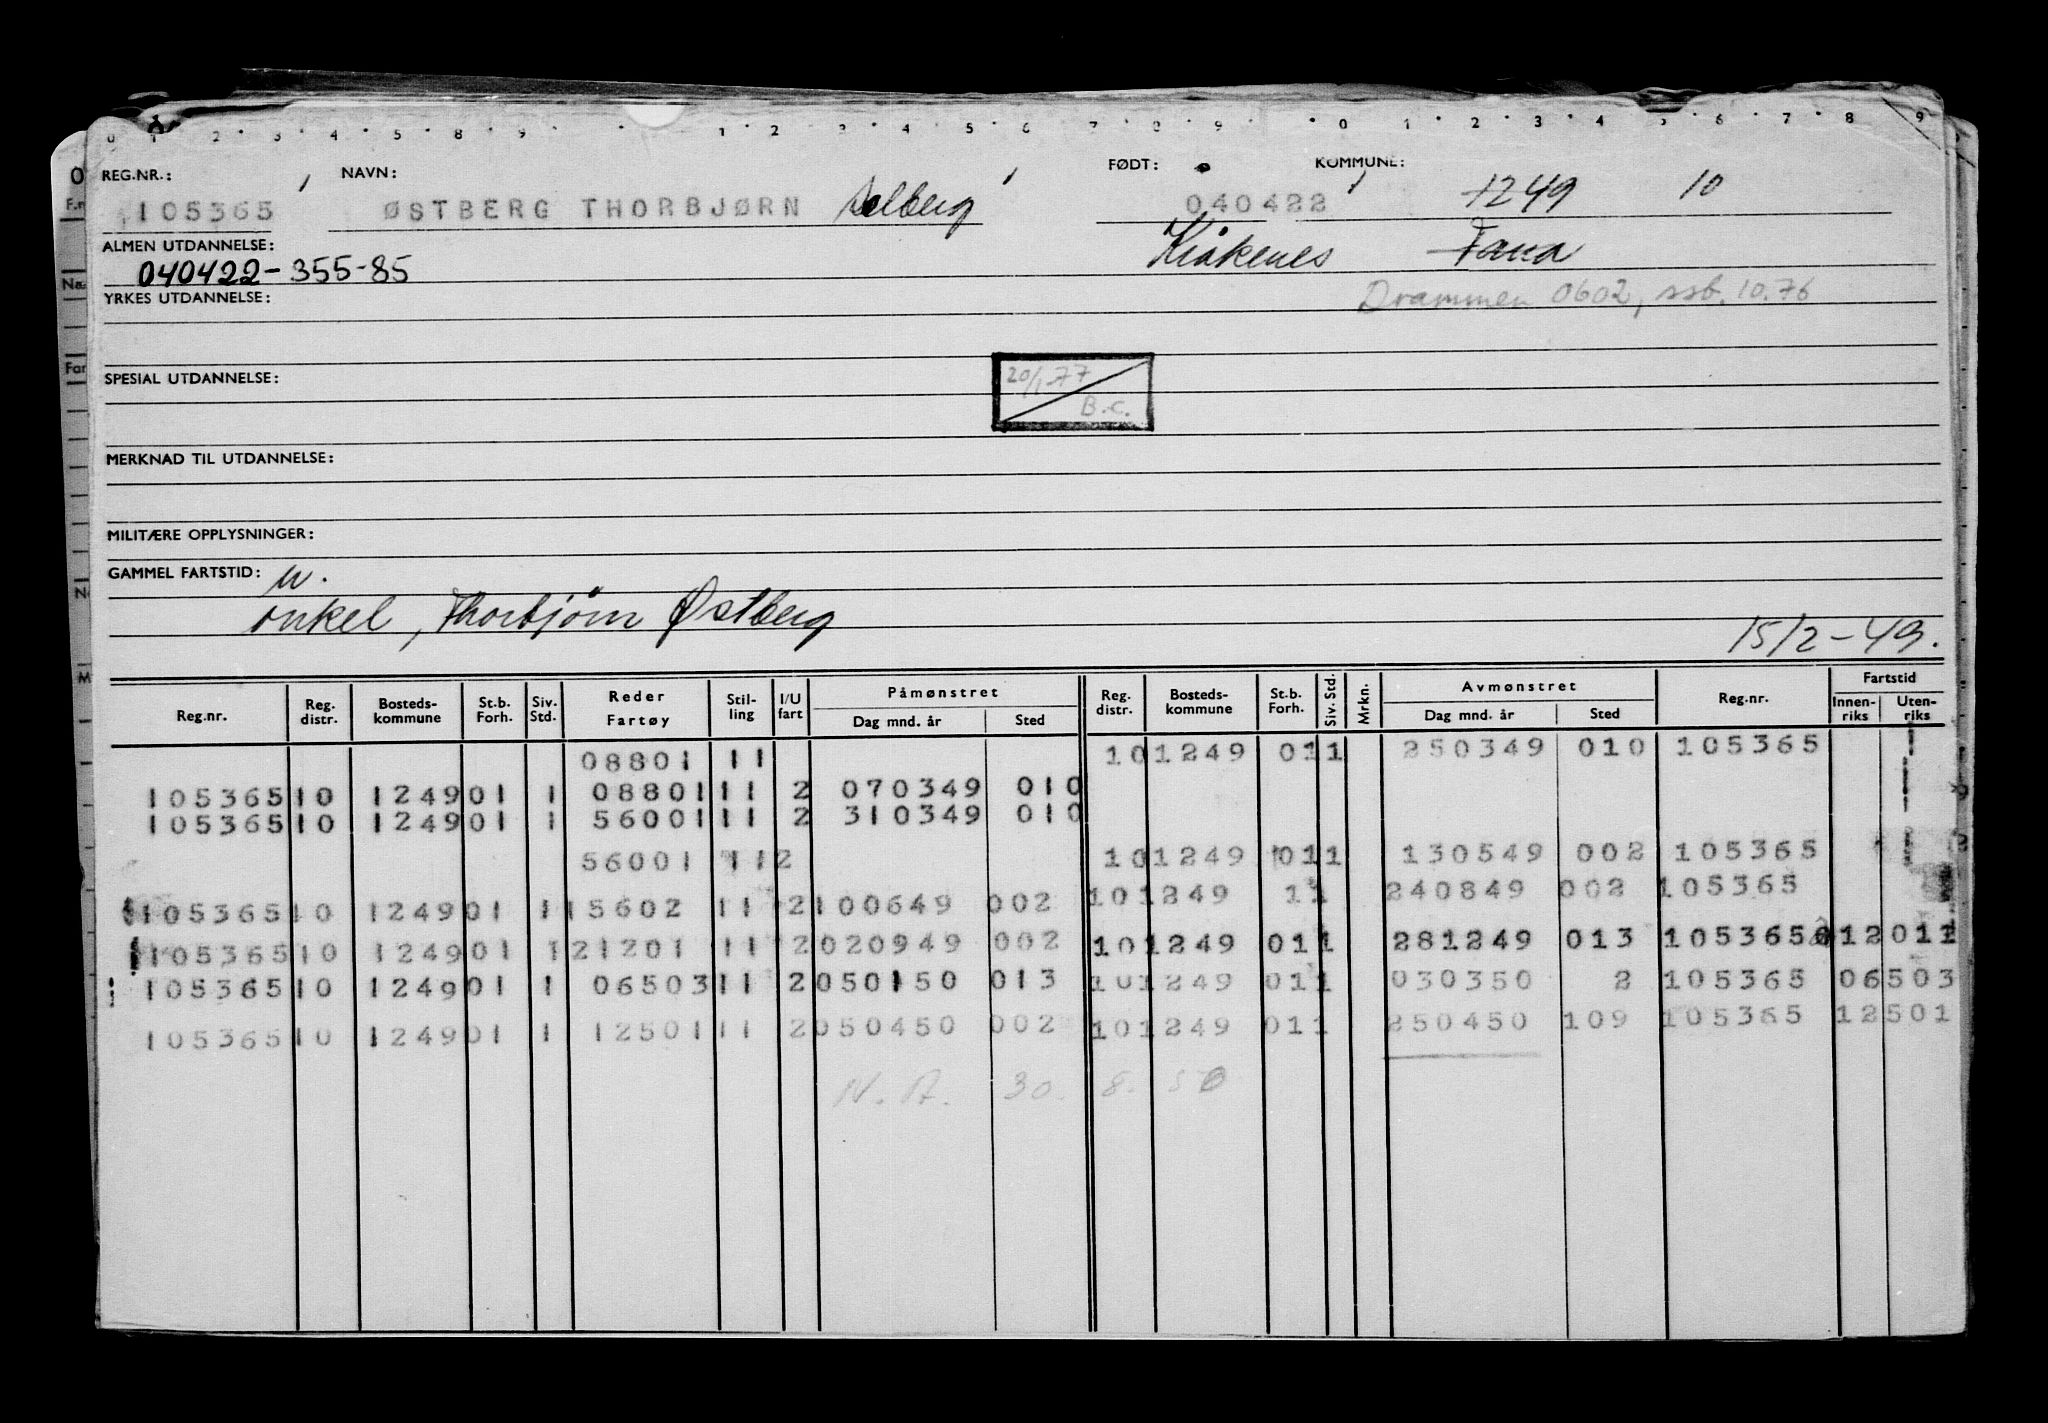 REG.NR.: NAVN: FØDT: KOMMUNE:
105365 ØSTBERG THORBJØRN 040422 1249 10
ALMEN UTDANNELSE: Kråkenes Fana
040422-355-85
YRKES UTDANNELSE: Drammen 0602, ssb. 10.76
SPESIAL UTDANNELSE: 20/1-77
B.C.
MERKNAD TIL UTDANNELSE:
MILITÆRE OPPLYSNINGER:
GAMMEL FARTSTID: u.
onkel, Thorbjørn Østberg 15/2-49.
Reg.nr. Reg. distr. Bosteds-kommune St.b. Forh. Siv. Std. Reder Fartøy Stil-ling I/U fart Påmønstret Dag mnd. år Sted Reg. distr. Bosteds-kommune St.b. Forh. Siv. Std. Mrkn. Avmønstret Dag mnd. år Sted Reg.nr. Fartstid Innen-riks Uten-riks
08801 11 10 1249 01 1 250349 010 105365
105365 10 1249 01 1 08801 11 2 070349 010
105365 10 1249 01 1 56001 11 2 310349 010
56001 11 2 10 1249 01 1 130549 002 105365
105365 10 1249 01 1 15602 11 2 100649 002 10 1249 1 1 240849 002 105365
105365 10 1249 01 1 21201 11 2 020949 002 10 1249 01 1 281249 013 105365 12011
105365 10 1249 01 1 06503 11 2 050150 013 10 1249 01 1 030350 2 105365 06503
105365 10 1249 01 1 12501 11 2 050450 002 10 1249 01 1 250450 109 105365 12501
N.A. 30. 8. 50